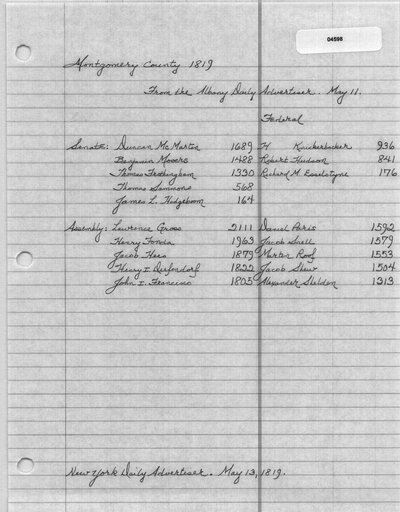 04598
Montgomery County 1819
From the Albany Daily Advertiser. May 11.
Federal
Senate: Duncan McMartin 1689 H Knickerbocker 936
Benjamin Mooers 1488 Robert Hudson 841
Thomas Frothingham 1330 Richard M. Esselstyne 176
Thomas Sammons 568
James L. Hodgeboom 164
Assembly: Lawrence Gross 2111 Daniel Paris 1592
Henry Fonda 1963 Jacob Snell 1579
Jacob Hees 1879 Marten Roof 1553
Henry I. Diefendorf 1822 Jacob Shew 1504
John I. Francisco 1805 Alexander Sheldon 1313
New York Daily Advertiser. May 13, 1819.